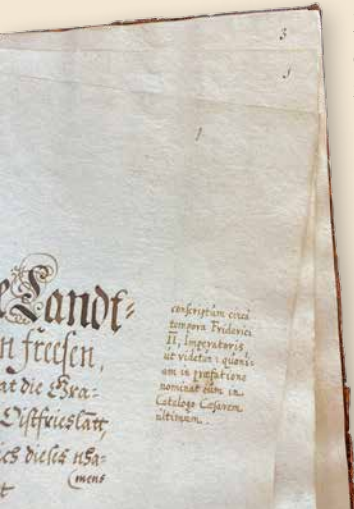 3
1
1
e Landt-
n freesen,
at die Gra-
Oistfrieslatt,
ich dieses nha-
mens
t
conscriptum circa
tempora Friderici
II, Imperatoris
ut videtur: quoni-
am in præfatione
nominat eum in
Catalogo Cæsarem
ultimum.